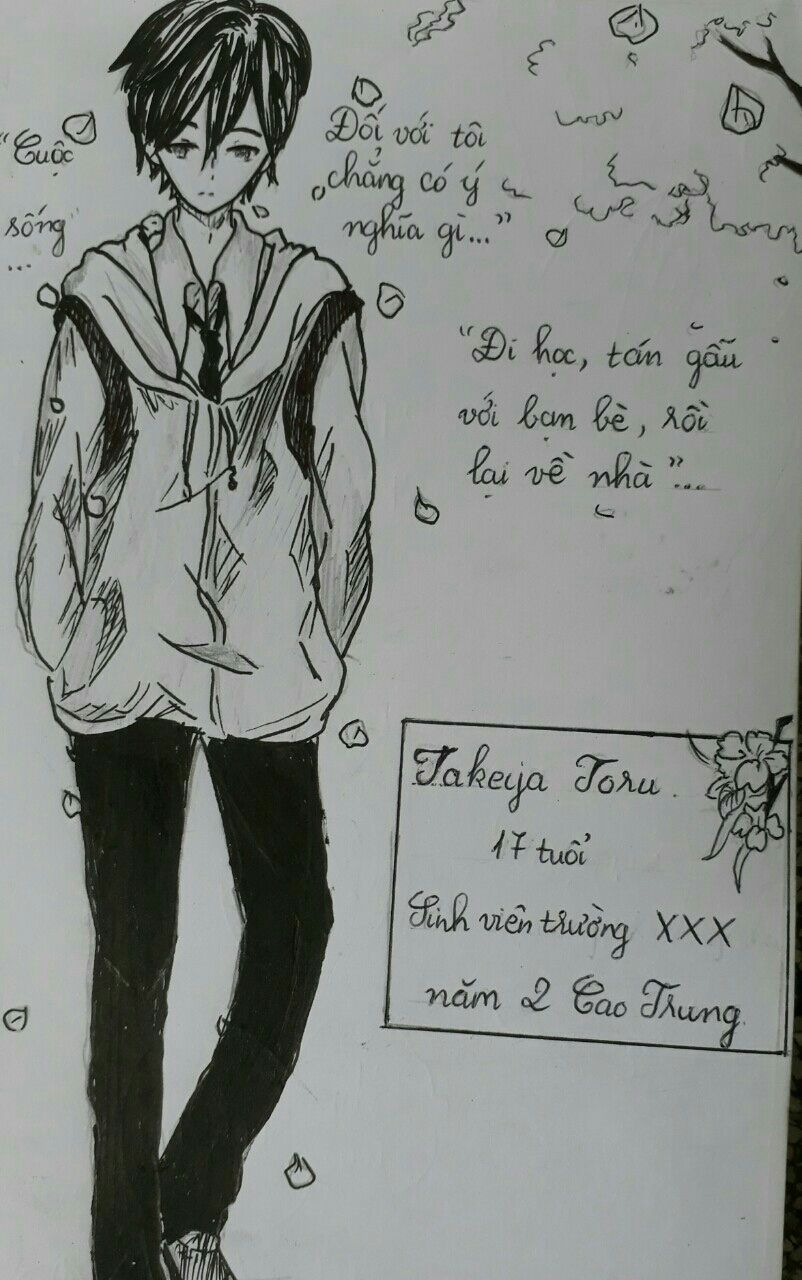 "Cuộc
sống"
...
Đối với tôi
chẳng có ý
nghĩa gì..."
"Đi học, tán gẫu
với bạn bè, rồi
lại về nhà"...
Takeya Toru.
17 tuổi
Sinh viên trường XXX
năm 2 Cao Trung.